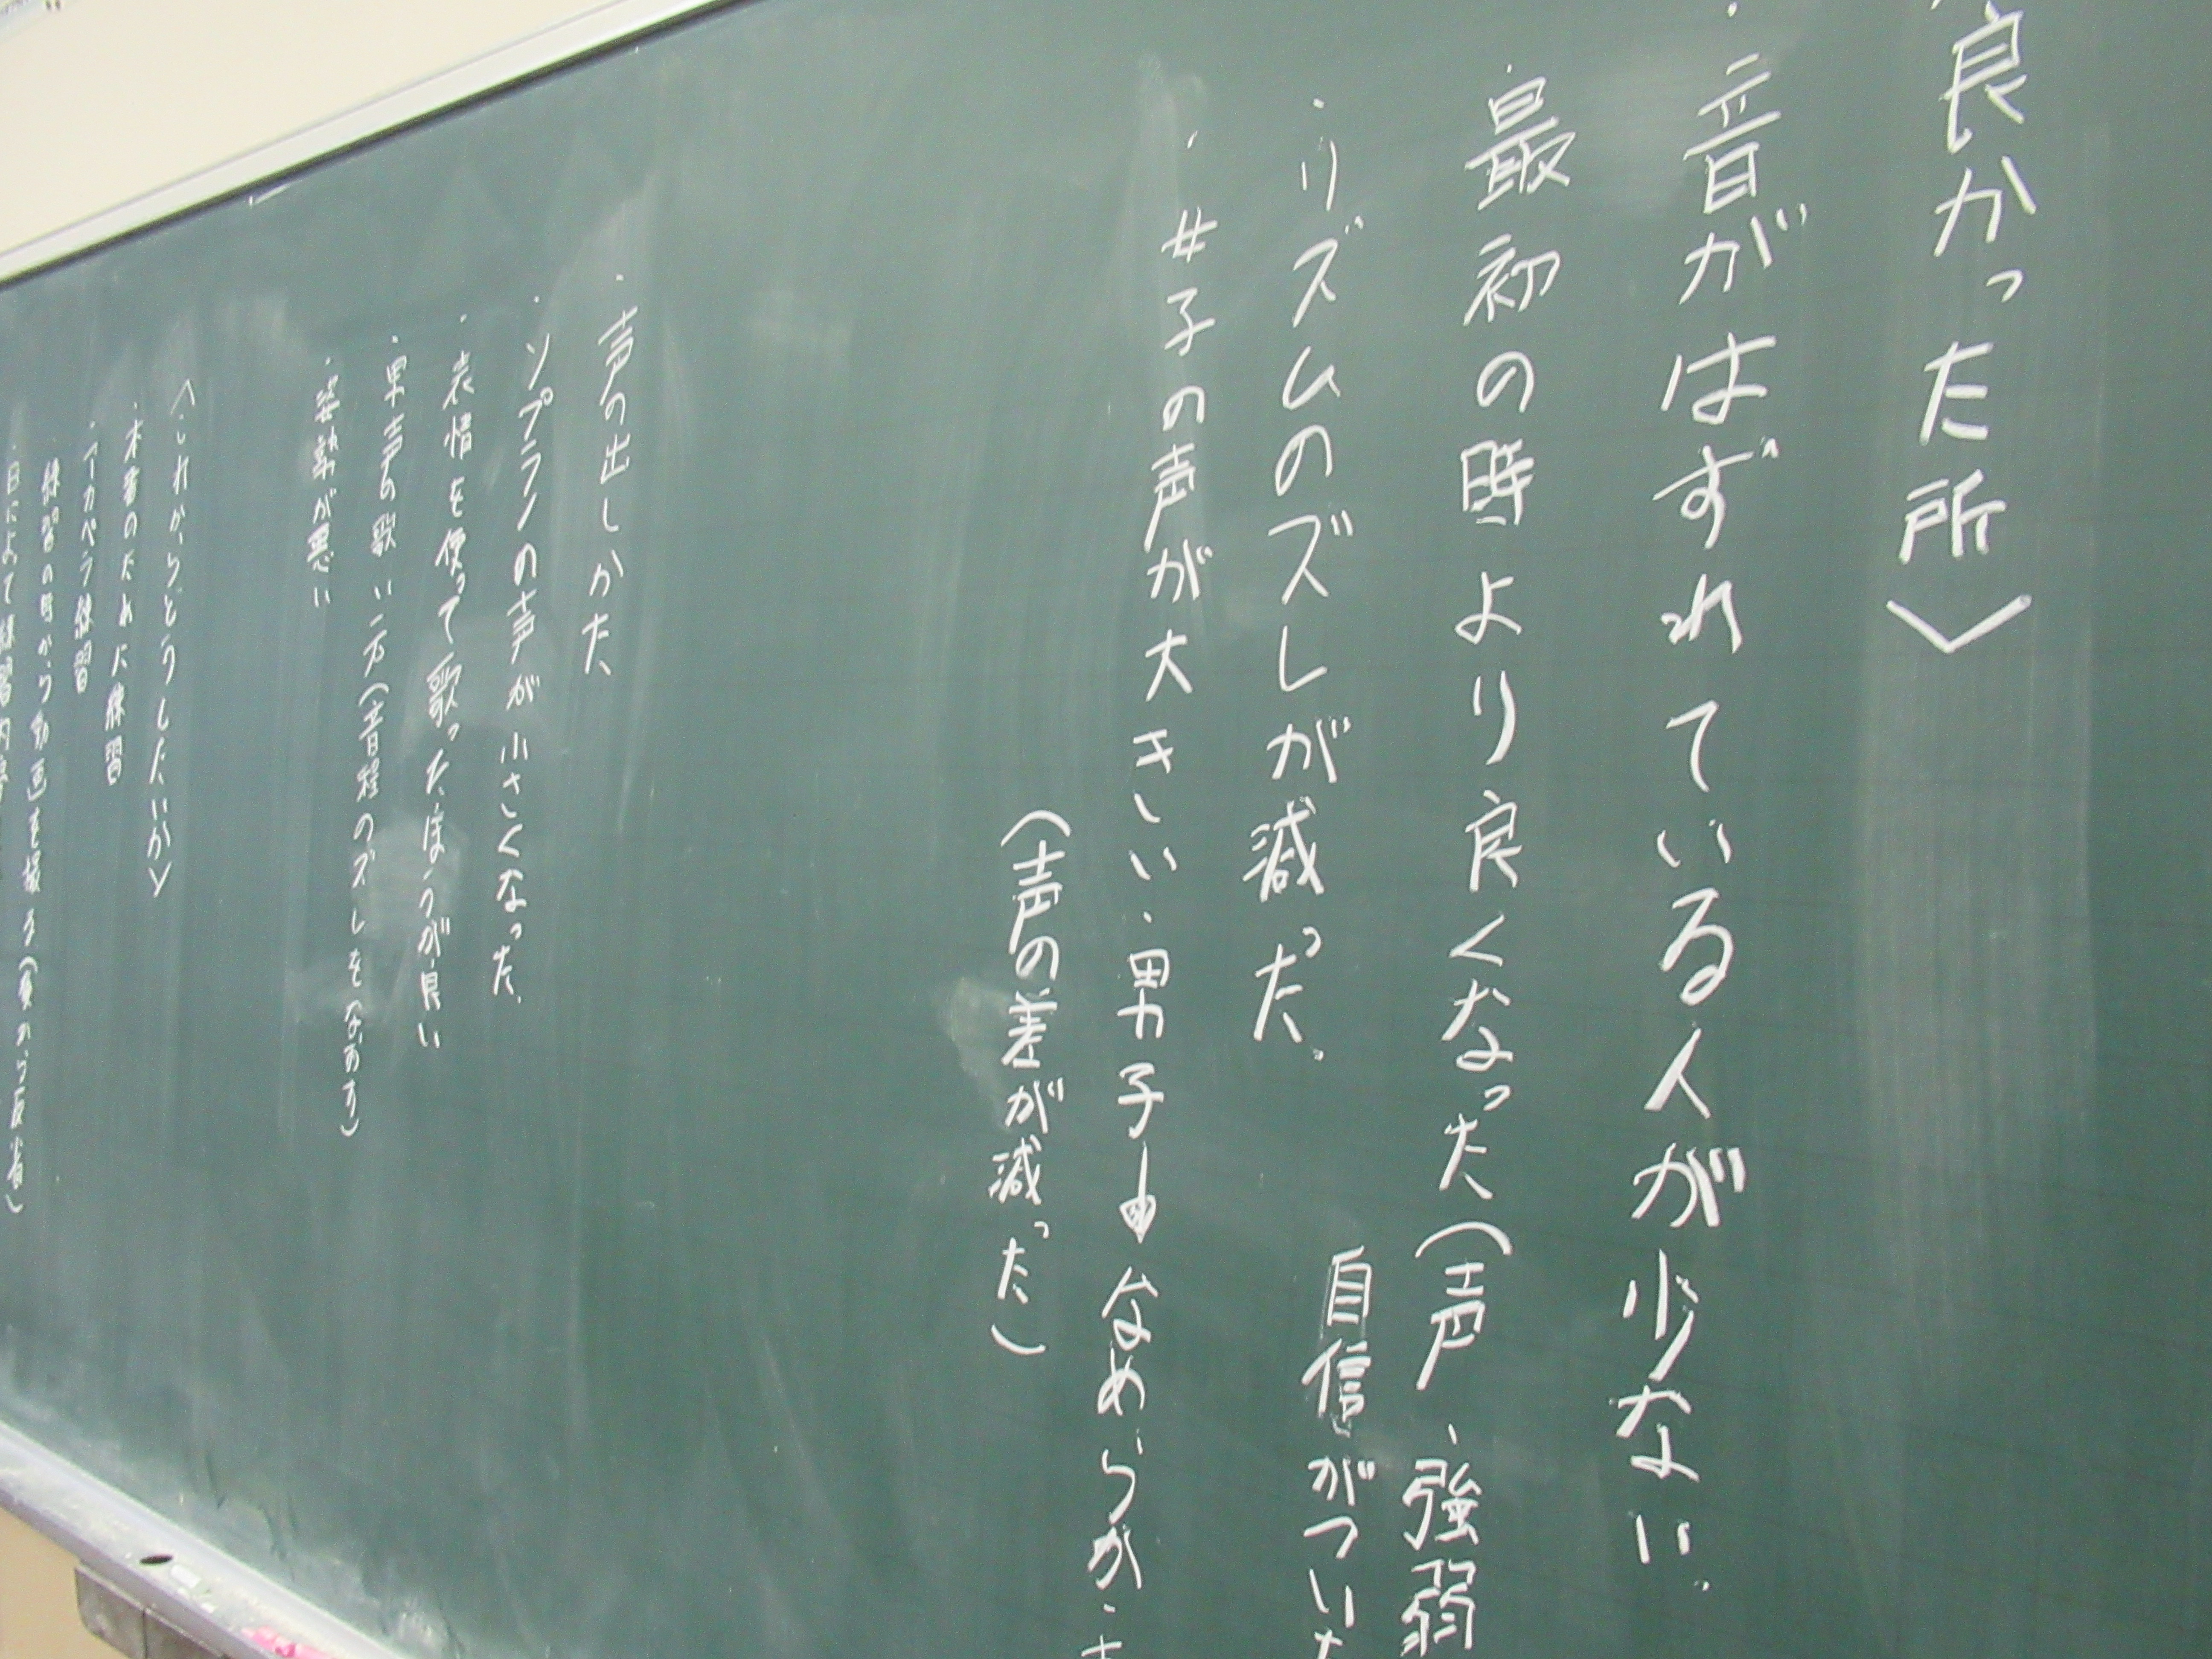 良かった所〉
・音がはずれている人が少ない。
・最初の時より良くなった(声、強弱
自信がついた
・リズムのズレが減った。
・女子の声が大きい・男子 なめらか・
(声の差が減った)
・声の出しかた
・ソプラノの声が小さくなった。
・表情を使って歌ったほうが良い
・男声の歌い方(音程のズレをなおす)
・姿勢が悪い
〈これからどうしたいか〉
・本番のために練習
・アカペラ練習
練習の時から動画を撮る(負から反省)
・日によって練習内容